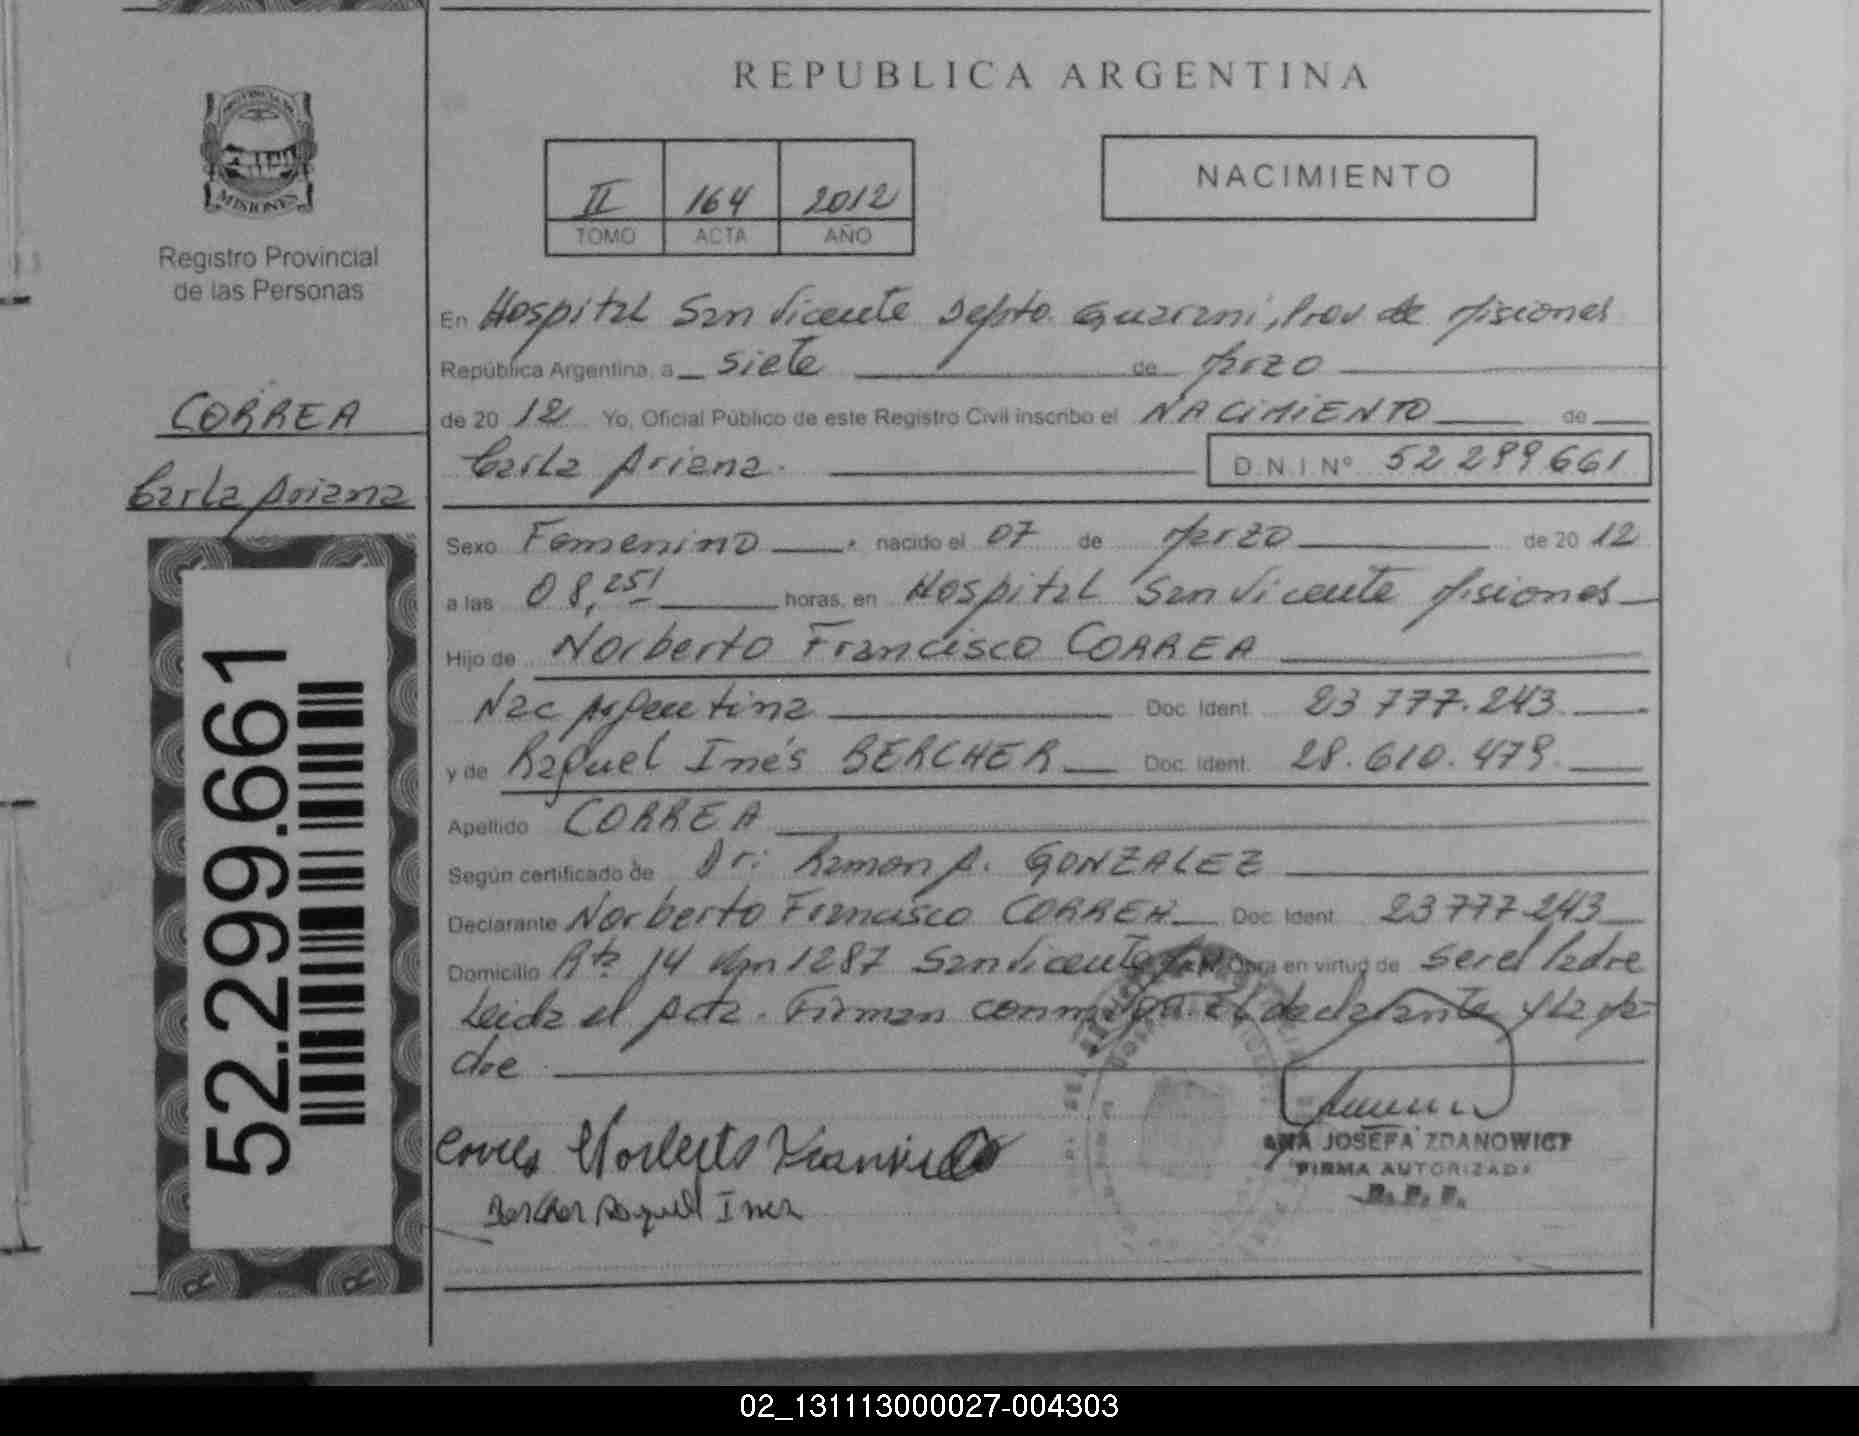 REPUBLICA ARGENTINA
PROVINCIA DE
MISIONES
Registro Provincial
de las Personas
II 164 2012
TOMO ACTA AÑO
NACIMIENTO
CORREA
Carla Ariana
52.299.661
En Hospital San Vicente Depto. Guarani, Prov de Misiones
República Argentina, a siete de Marzo
de 2012 Yo, Oficial Público de este Registro Civil inscribo el NACIMIENTO de
Carla Ariana. D.N.I. Nº 52 299 661
Sexo Femenino nacido el 07 de Marzo de 2012
a las 08,25' horas, en Hospital San Vicente Misiones
Hijo de Norberto Francisco CORREA
Nac Argentina Doc. Ident. 23 777.243.
y de Raquel Inés BERCHER Doc. Ident. 28.610.479.
Apellido CORREA
Según certificado de Dr: Ramon A. GONZALEZ
Declarante Norberto Francisco CORREA Doc. Ident. 23 777 243
Domicilio Rta 14 Km 1287 San Vicente Obra en virtud de ser el Padre
Leida el Acta. Firman conmigo el declarante y la Ma-
dre
Correa Norberto Francisco
Bercher Raquel Ines
ANA JOSEFA ZDANOWICZ
FIRMA AUTORIZADA
R. P. P.
02_131113000027-004303